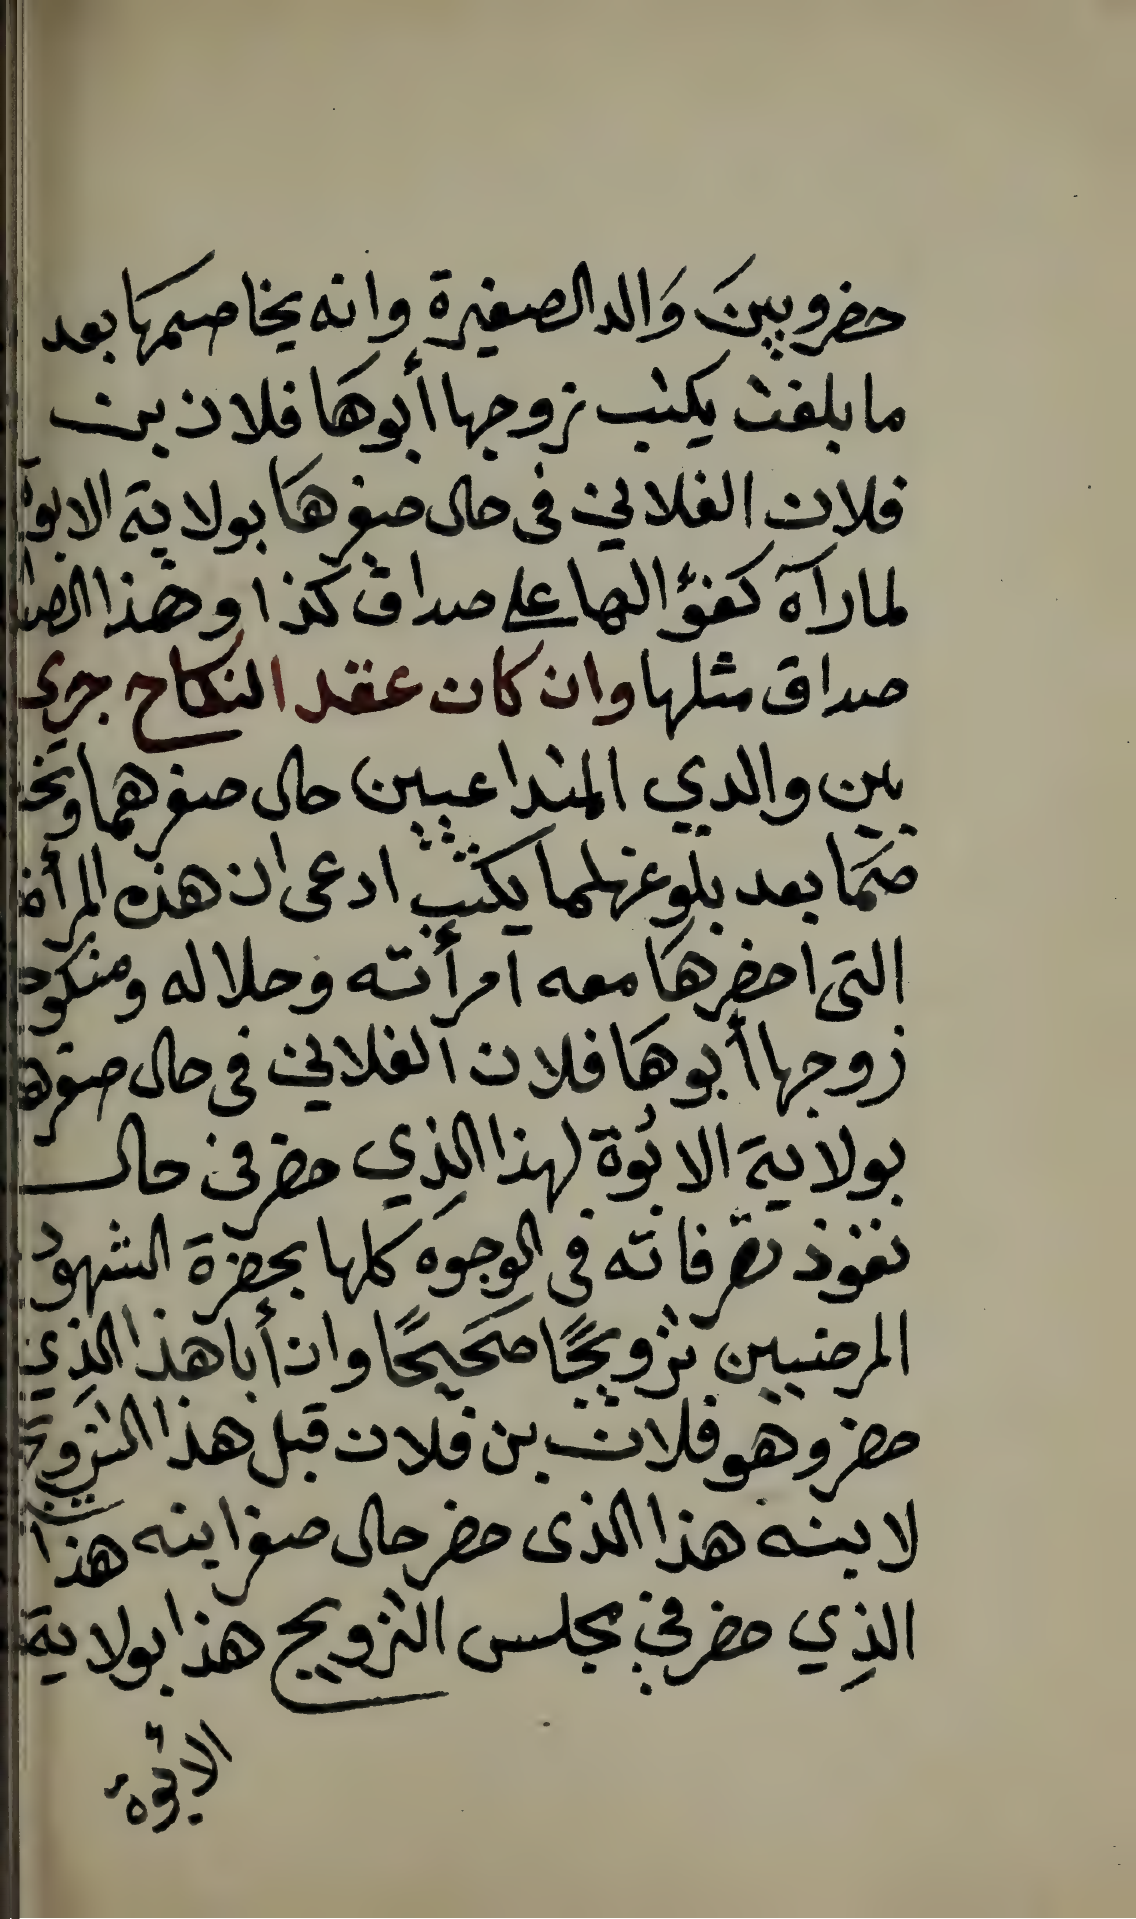 حضر وبين وَالد الصغيرة وانه يخاصمها بعد
ما بلغت يكتب زوجها أبوهَا فلان بن
فلان الفلاني في حال صغرهَا بولاية الابوة
لما رآه كفؤا لها على صداق كذا وهذا الصدا
صداق مثلها وان كان عقد النكاح جرى
بين والدي المتداعيين حال صغرهما وتخا
صَمَا بعد بلوغهما يكتب ادعى ان هذه المرأة
التى احضرهَا معه امرأته وحلاله ومنكوحته
زوجها أبوهَا فلان الفلاني في حال صغرها
بولاية الابُوة لهذا الذِي حضر في حال
نفوذ تصرفاته في الوجوه كلها بحضرة الشهود
المرضيين تزويجًا صَحَيحًا وان أبا هذا الذِي
حضر وهو فلان بن فلان قبل هذا التزويج
لابنه هذا الذى حضر حال صغر ابنه هذا
الذِي حضر في مجلس التزويج هذا بولاية
الابُوة